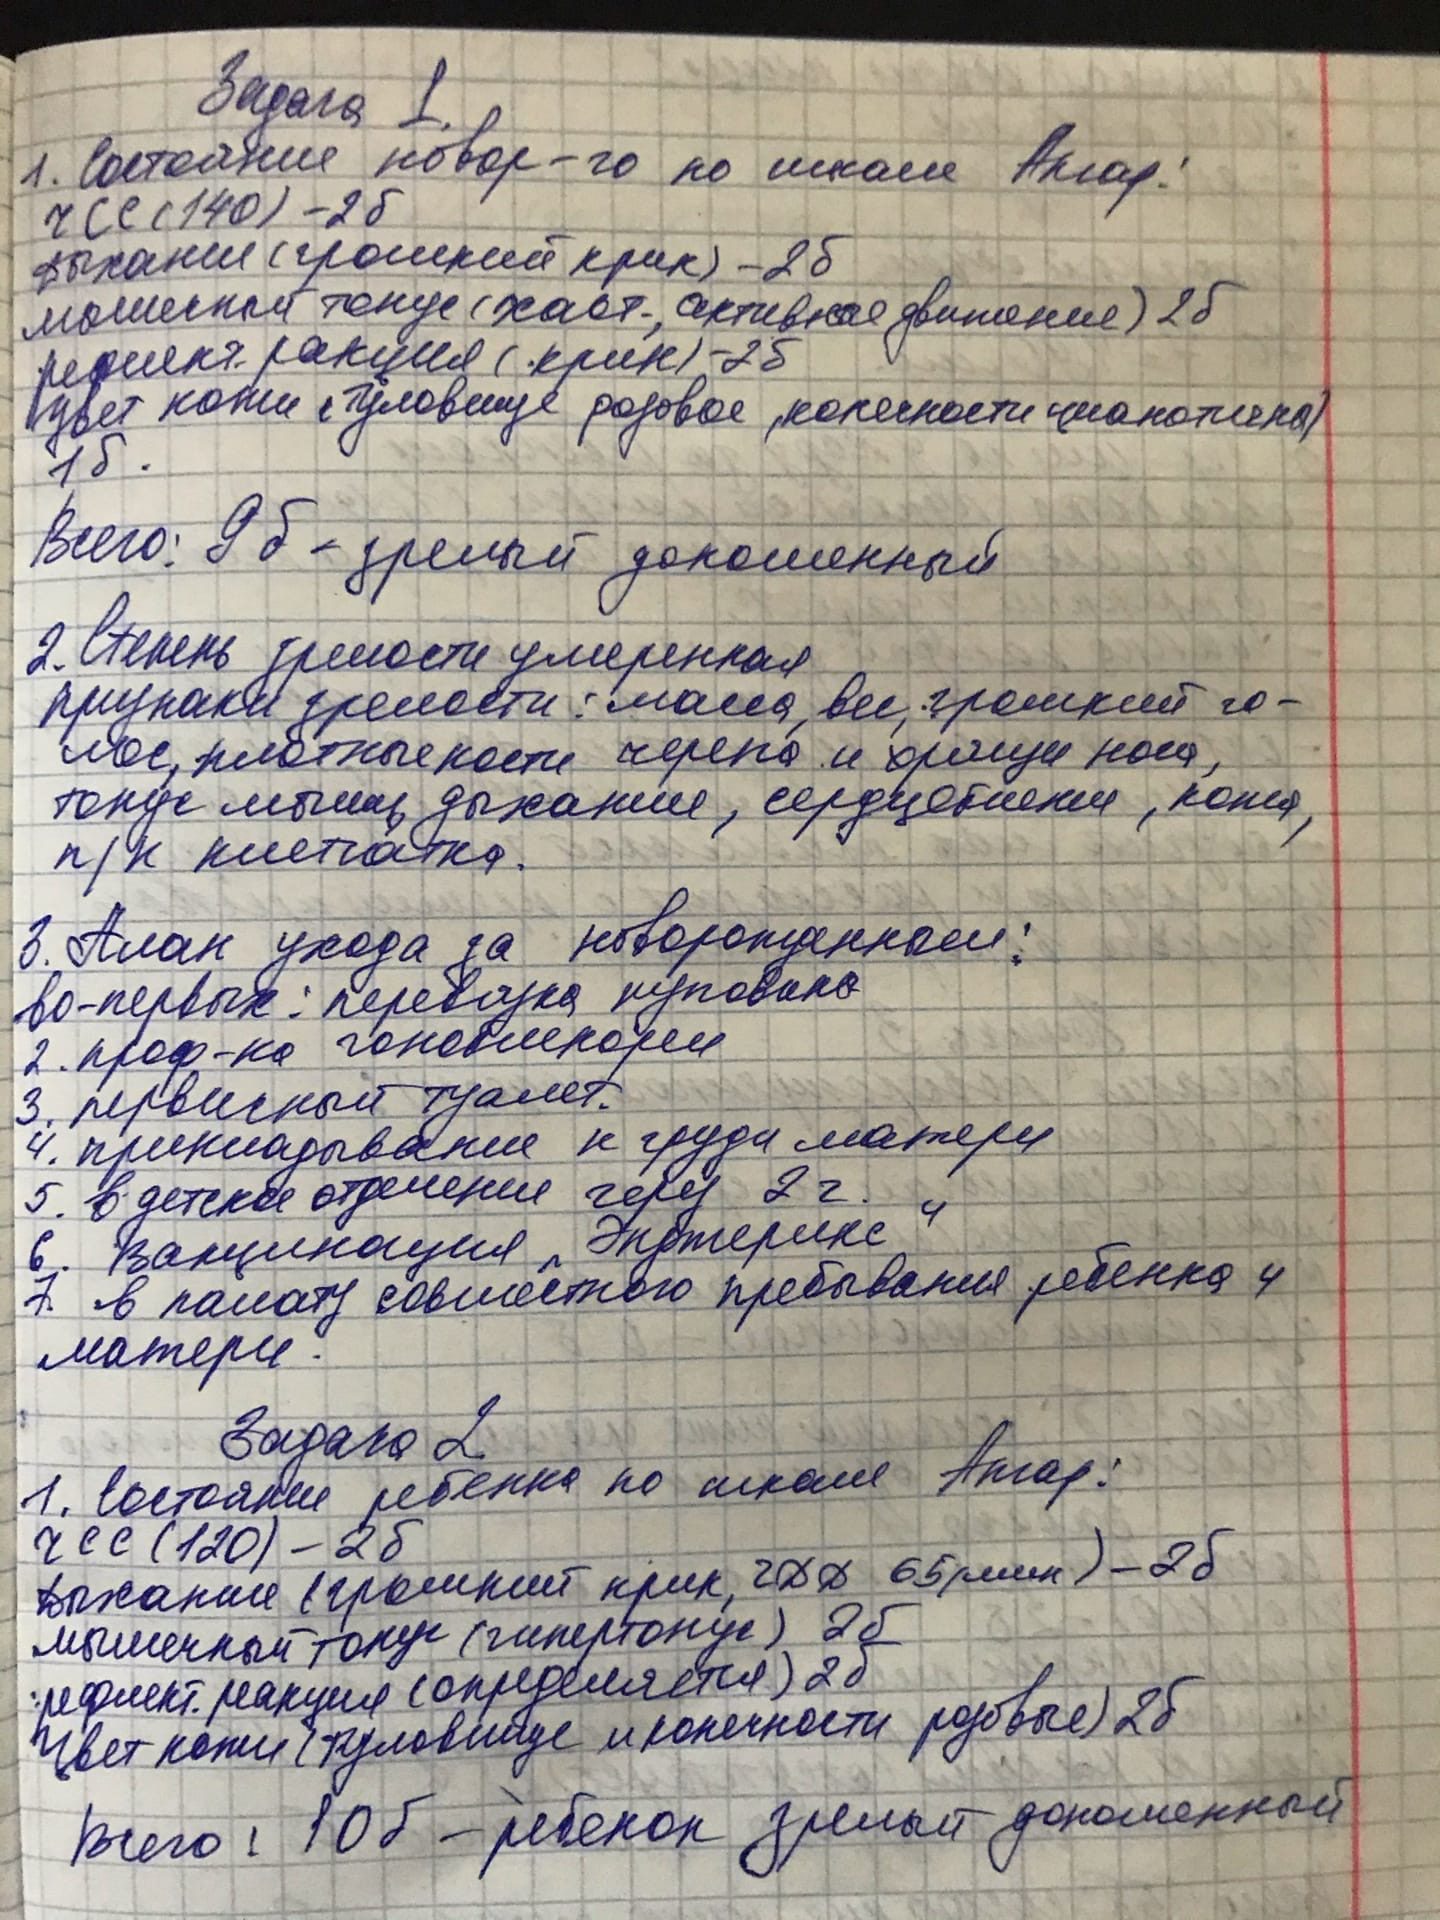 Задача 1.
1. Состояние новор-го по шкале Апгар:
ЧСС (140) - 2б
дыхание (громкий крик) - 2б
мышечный тонус (хаот., активное движение) 2б
рефлект. ракция (крик) - 2б
цвет кожи (туловище розовое, конечности цианотична)
1б.
Всего: 9б - зрелый доношенный
2. Степень зрелости умеренная
признаки зрелости: масса, вес, громкий го-
лос, плотные кости черепа и хрящи носа,
тонус мышц, дыхание, сердцебиение, кожа,
п/к клетчатка.
3. План ухода за новорожденным:
во-первых: перевязка пуповина
2. проф-ка гонобленореи
3. первичный туалет.
4. прикладывание к груди матери
5. в детское отделение через 2 ч.
6. Вакцинация „Энджерикс"
7. в палату совместного пребывания ребенка и
матери.
Задача 2
1. Состояние ребенка по шкале Апгар:
ЧСС (120) - 2б
дыхание (громкий крик, ЧДД 65/мин) - 2б
мышечный тонус (гипертонус) 2б
рефлект. реакция (определяется) 2б
Цвет кожи (туловище и конечности розовые) 2б
Всего: 10б - ребенок зрелый доношенный